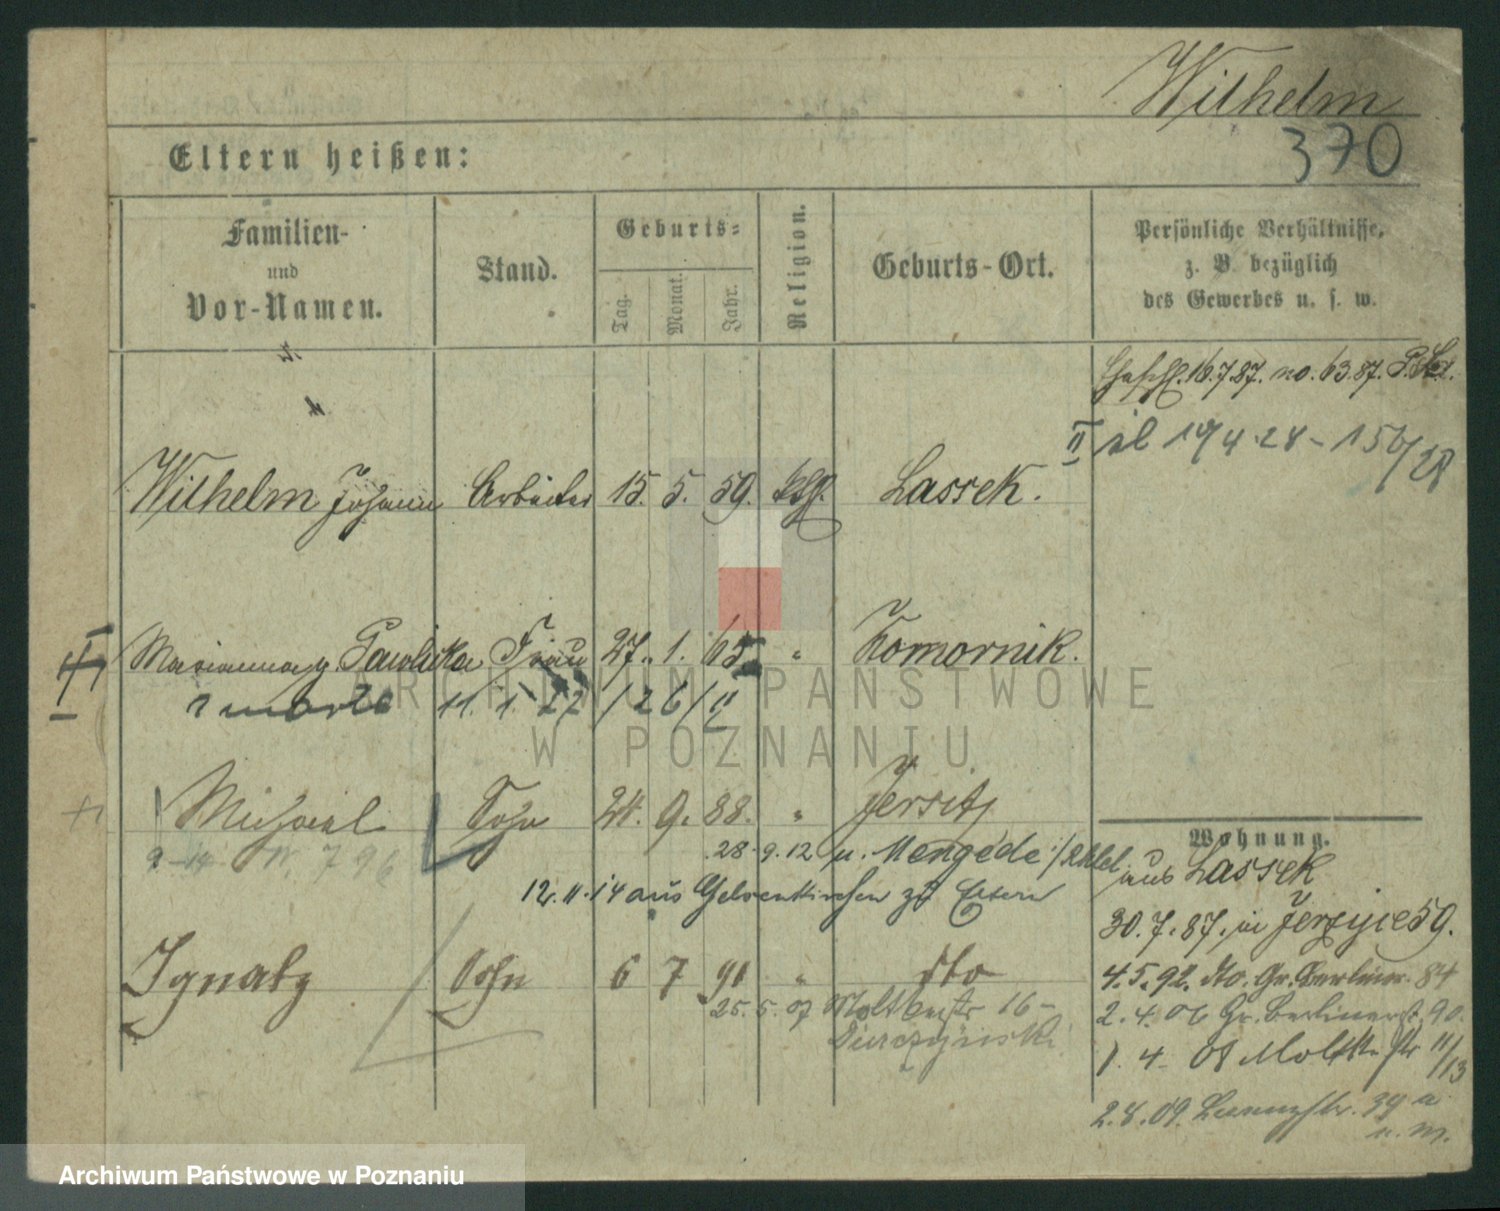 Wilhelm
370
Eltern heißen:
Familien-
und
Vor-Namen.
Stand.
Geburts-
Tag.
Monat.
Jahr.
Religion.
Geburts-Ort.
Persönliche Verhältnisse,
z. B. bezüglich
des Gewerbes u. s. w.
16.7.87. no. 63.87.
II 19/4.28 - 156/28
Wilhelm Johann Arbeiter 15. 5. 59. kth. Lassek.
Marianna g. Pawlicka Frau 27. 1. 65 " Komornik.
zmarła 11. 1. 27 /26/II
Michael Sohn 24. 9. 88. " Jersitz
28.9.12 n. Mengede
12.11.14 aus Gelsenkirchen zu Eltern
Ignatz Sohn 6 7 91 " dto
25.5.07 Moltkestr 16-
Wohnung.
aus Lassek
30.7.87. in Jerzyce 59.
4.5.92. dto. Gr. Berliner. 84
2.4.06 Gr. Berlinerst. 90.
1. 4. 08 Moltke str 11/13
2.8.09. 39 a
n. m.
ARCHIWUM PAŃSTWOWE
W POZNANIU
Archiwum Państwowe w Poznaniu